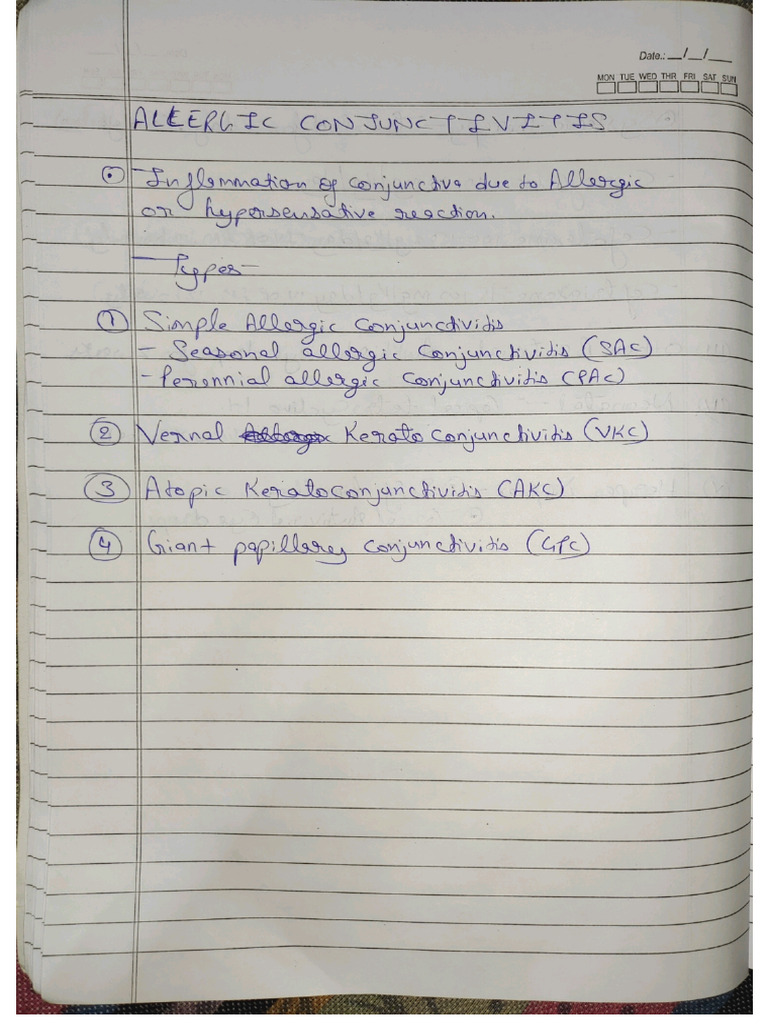 Date.: __/__/__
MON TUE WED THR FRI SAT SUN
ALLERGIC CONJUNCTIVITIS
Inflammation of conjunctiva due to Allergic
or hypersensative reaction.
- Types -
1 Simple Allergic Conjunctividis
- Seasonal allergic Conjunctivitis (SAC)
- Perennial allergic Conjunctivitis (PAC)
2 Vernal Kerato conjunctivitis (VKC)
3 Atopic Keratoconjunctivitis (AKC)
4 Giant papillary conjunctivitis (GPC)